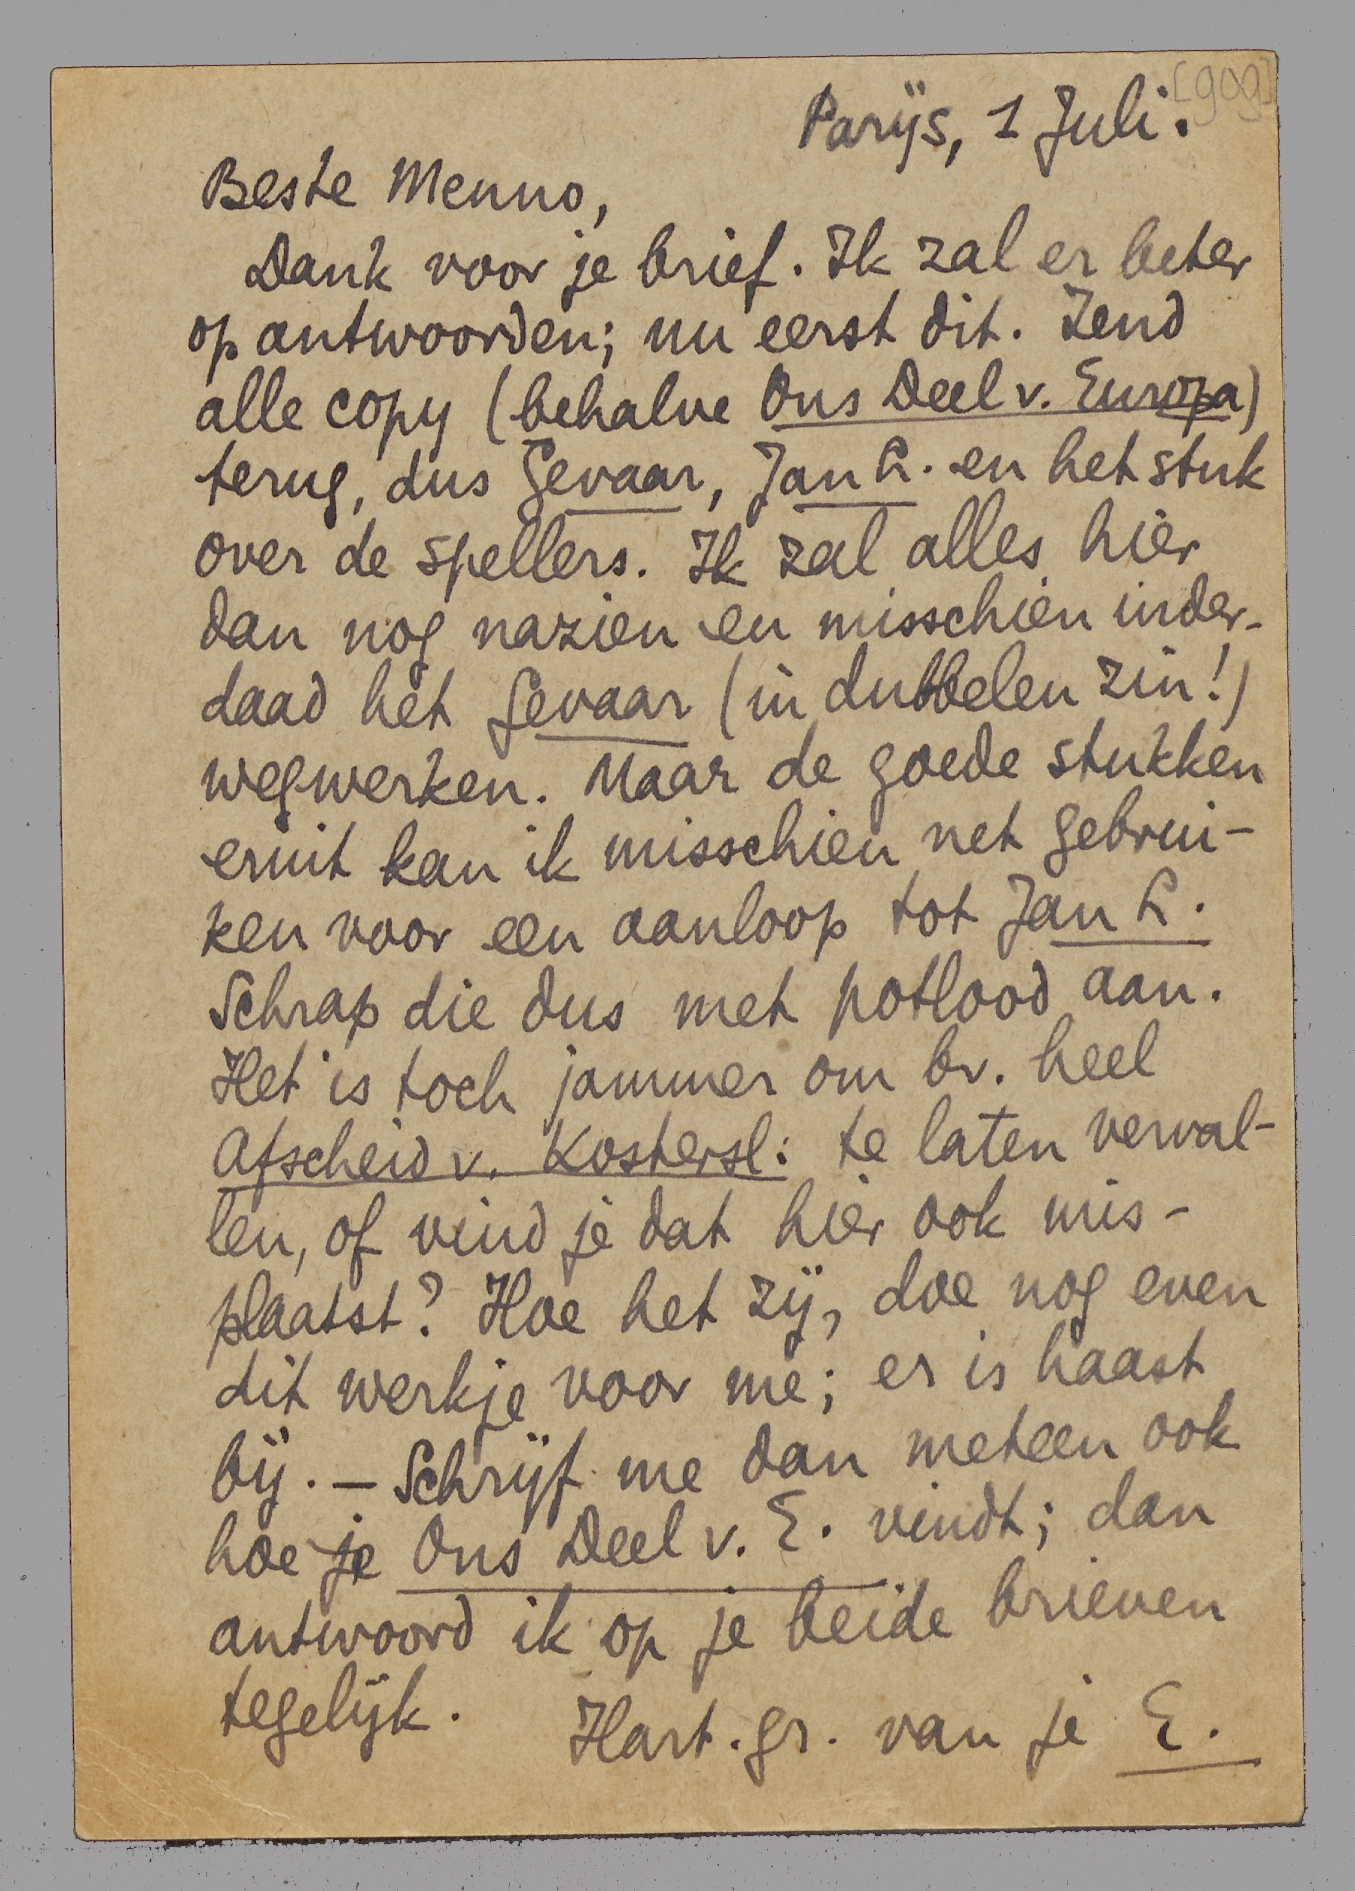 [909]
Parijs, 1 Juli.
Beste Menno,
Dank voor je brief. Ik zal er beter
op antwoorden; nu eerst dit. Zend
alle copy (behalve Ons Deel v. Europa)
terug, dus Gevaar, Jan L. en het stuk
over de spellers. Ik zal alles hier
dan nog nazien en misschien inder-
daad het Gevaar (in dubbelen zin!)
wegwerken. Maar de goede stukken
eruit kan ik misschien net gebrui-
ken voor een aanloop tot Jan L.
Schrap die dus met potlood aan.
Het is toch jammer om bv. heel
Afscheid v. Kostersl: te laten verval-
len, of vind je dat hier ook mis-
plaatst? Hoe het zij, doe nog even
dit werkje voor me; er is haast
bij. — Schrijf me dan meteen ook
hoe je Ons Deel v. E. vindt; dan
antwoord ik op je beide brieven
tegelijk. Hart. gr. van je E.